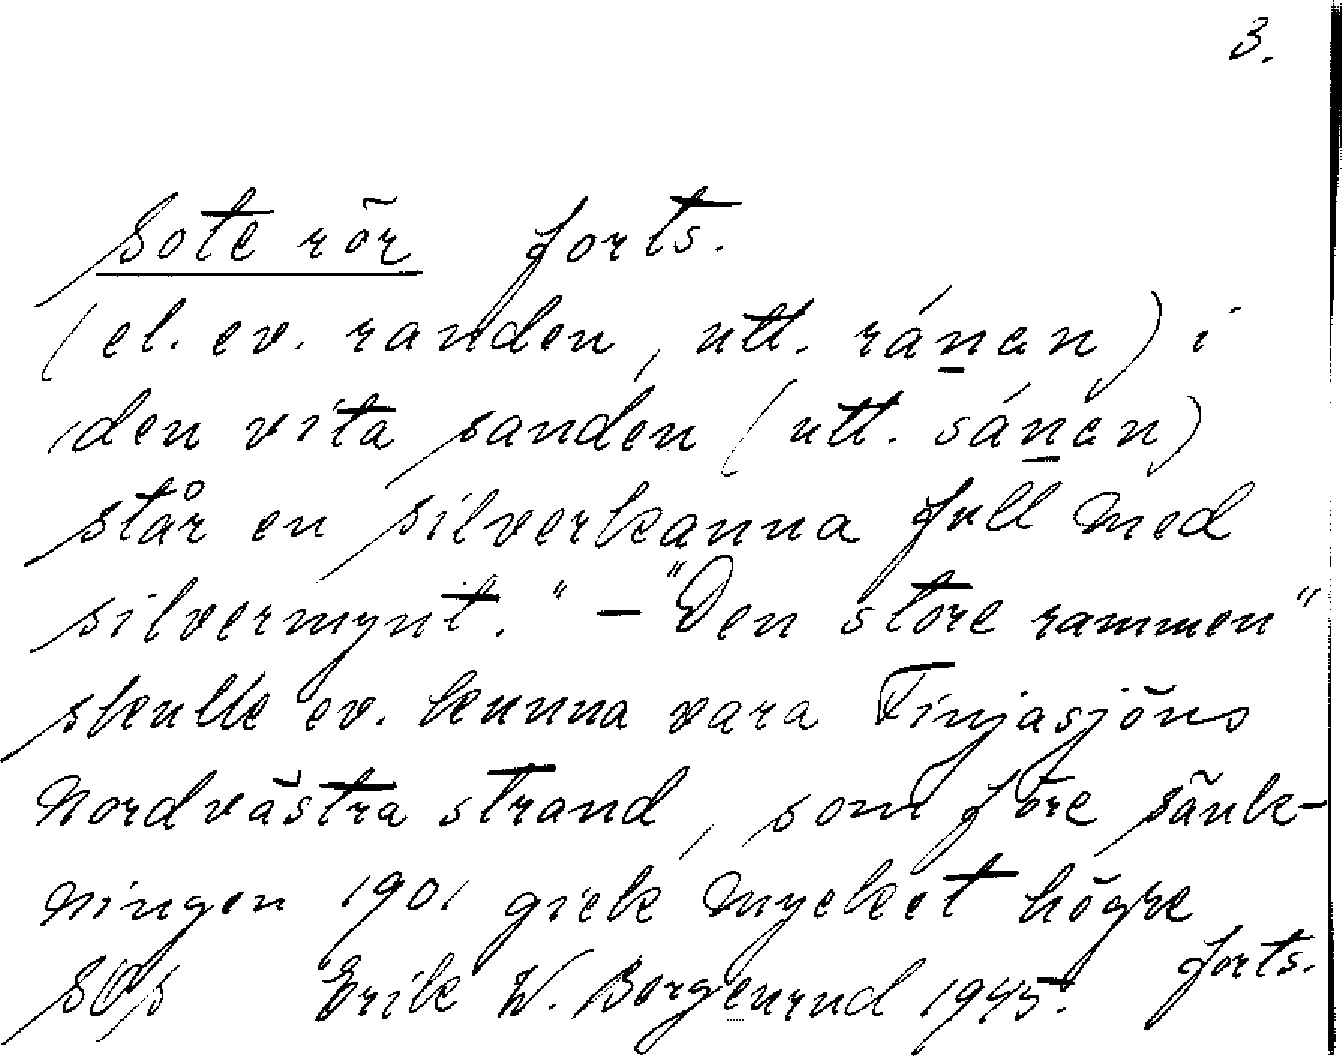 3.
Sote rör forts.
(el. ev. randen, utt. ránen) i
den vita sanden (utt. sánen)
står en silverkanna full med
silvermynt." – "Den store rammen"
skulle ev. kunna vara Finjasjöns
nordvästra strand, som före sänk-
ningen 1901 gick mycket högre
forts.
Erik W. 1945.